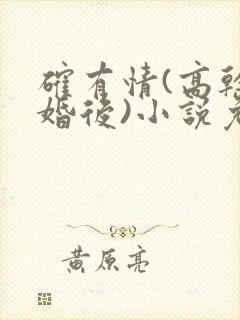 確有情(高幹
婚後)小說
黃原亮